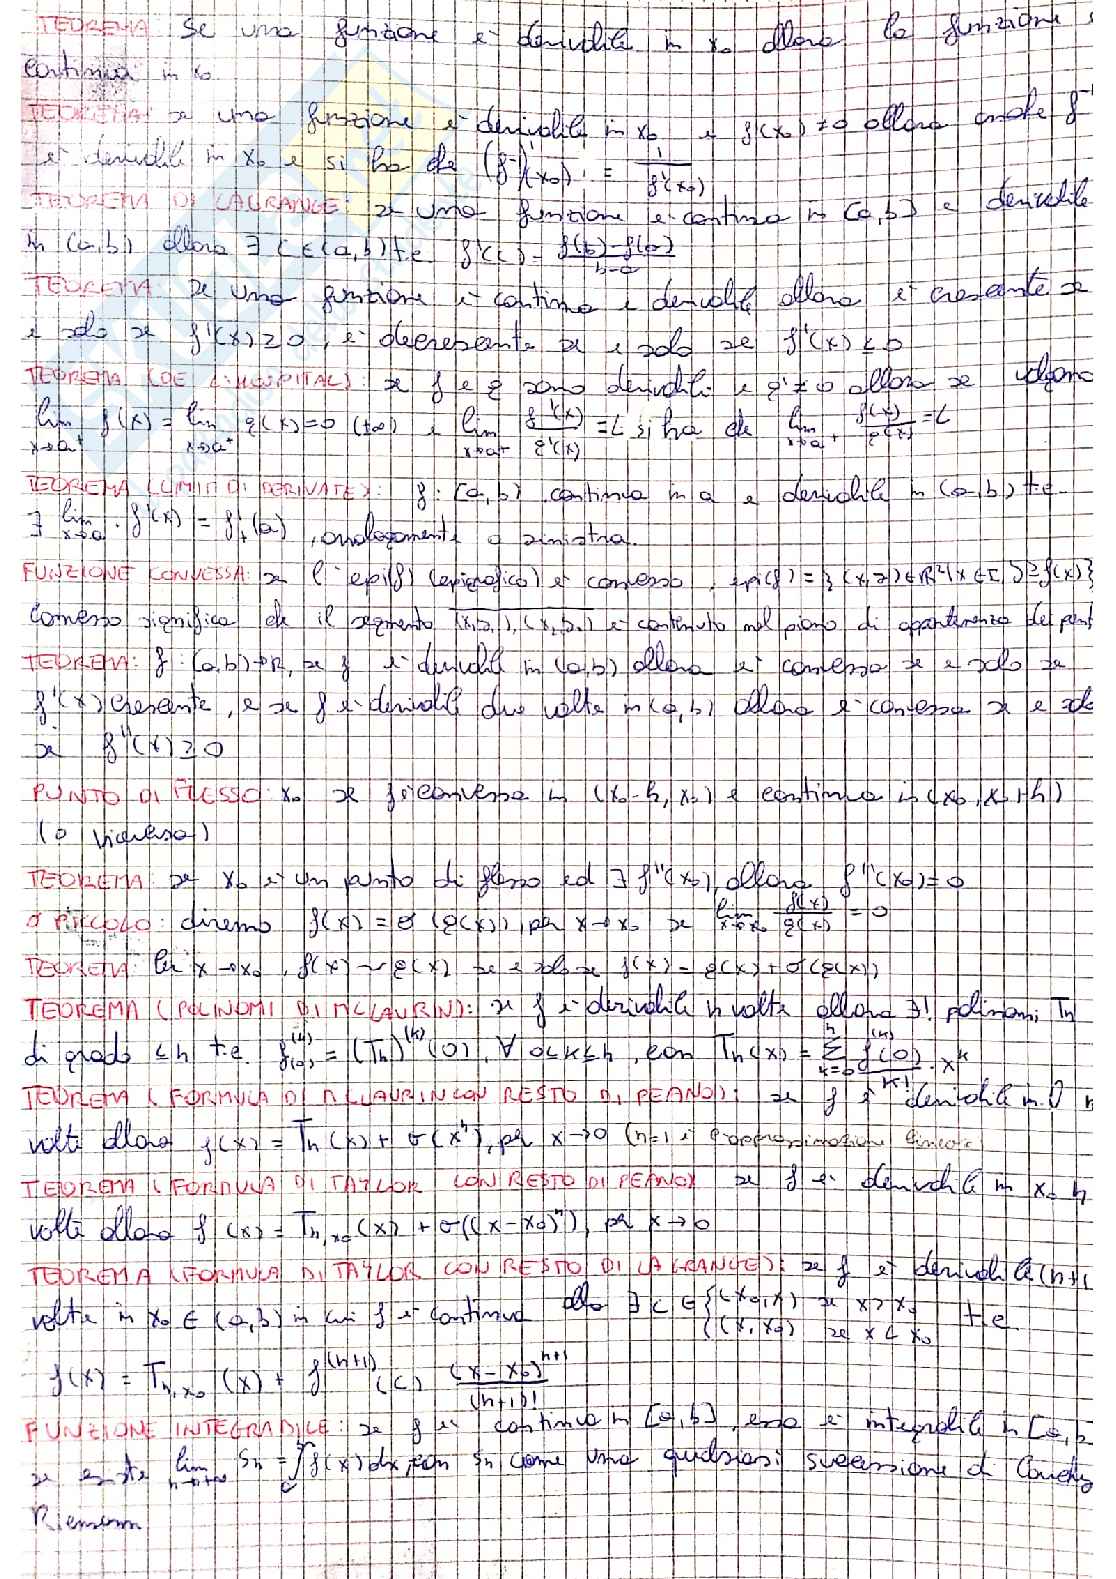 TEOREMA: Se una funzione è derivabile in x₀ allora la funzione è
continua in x₀
TEOREMA: se una funzione è derivabile in x₀ e f'(x₀) ≠ 0 allora anche f⁻¹
è derivabile in x₀ e si ha che (f⁻¹)'(x₀) = 1/f'(x₀)
TEOREMA DI LAGRANGE: se una funzione è continua in [a,b] e derivabile
in (a,b) allora ∃ c ∈ (a,b) t.c. f'(c) = f(b)-f(a)/b-a
TEOREMA se una funzione è continua e derivabile allora è crescente se
e solo se f'(x) ≥ 0, è decrescente se e solo se f'(x) ≤ 0
TEOREMA (DE L'HOSPITAL): se f e g sono derivabili e g' ≠ 0 allora se valgono
lim x→a⁺ f(x) = lim x→a⁺ g(x) = 0 (±∞) e lim x→a⁺ f'(x)/g'(x) = L si ha che lim x→a⁺ f(x)/g(x) = L
TEOREMA (LIMITI DI DERIVATE): f: [a,b) continua in a e derivabile in (a,b) t.c.
∃ lim x→a f'(x) = f'₊(a), analogamente a sinistra.
FUNZIONE CONVESSA: se l'epi(f) (epigrafico) è convesso, epi(f) = {(x,y) ∈ R² | x ∈ I, y ≥ f(x)}
convesso significa che il segmento (x₁,y₁), (x₂,y₂) è contenuto nel piano di appartenenza dei punti
TEOREMA: f: (a,b)→R, se f è derivabile in (a,b) allora è convessa se e solo se
f'(x) crescente, e se f è derivabile due volte in (a,b) allora è convessa se e solo
se f''(x) ≥ 0
PUNTO DI FLESSO: x₀ se f è convessa in (x₀-h, x₀) e continua in (x₀, x₀+h)
(o viceversa)
TEOREMA: se x₀ è un punto di flesso ed ∃ f''(x₀), allora f''(x₀) = 0
O PICCOLO: diremo f(x) = o(g(x)), per x→x₀ se lim x→x₀ f(x)/g(x) = 0
TEOREMA: Per x→x₀, f(x) ~ g(x) se e solo se f(x) = g(x) + o(g(x))
TEOREMA (POLINOMI DI MCLAURIN): se f è derivabile n volte allora ∃! polinomi Tn
di grado ≤ n t.c. f⁽ᵏ⁾(0) = (Tn)⁽ᵏ⁾(0), ∀ 0≤k≤n, con Tn(x) = Σ k=0 n f⁽ᵏ⁾(0)/k! · xᵏ
TEOREMA (FORMULA DI MCLAURIN CON RESTO DI PEANO): se f è derivabile in 0 n
volte allora f(x) = Tn(x) + o(xⁿ), per x→0 (n=1 è l'approssimazione lineare)
TEOREMA (FORMULA DI TAYLOR CON RESTO DI PEANO) se f è derivabile in x₀ n
volte allora f(x) = Tn,x₀(x) + o((x-x₀)ⁿ), per x→0
TEOREMA (FORMULA DI TAYLOR CON RESTO DI LAGRANGE): se f è derivabile (n+1
volte in x₀ ∈ (a,b) in cui f è continua allo ∃ c ∈ { (x₀,x) se x > x₀ (x,x₀) se x < x₀ t.c.
f(x) = Tn,x₀(x) + f⁽ⁿ⁺¹⁾(c) (x-x₀)ⁿ⁺¹/(n+1)!
FUNZIONE INTEGRABILE: se f è continua in [a,b], essa è integrabile in [a,b]
se esiste lim n→+∞ Sn = ∫ f(x)dx, con Sn come una qualsiasi successione di Cauchy
Riemann